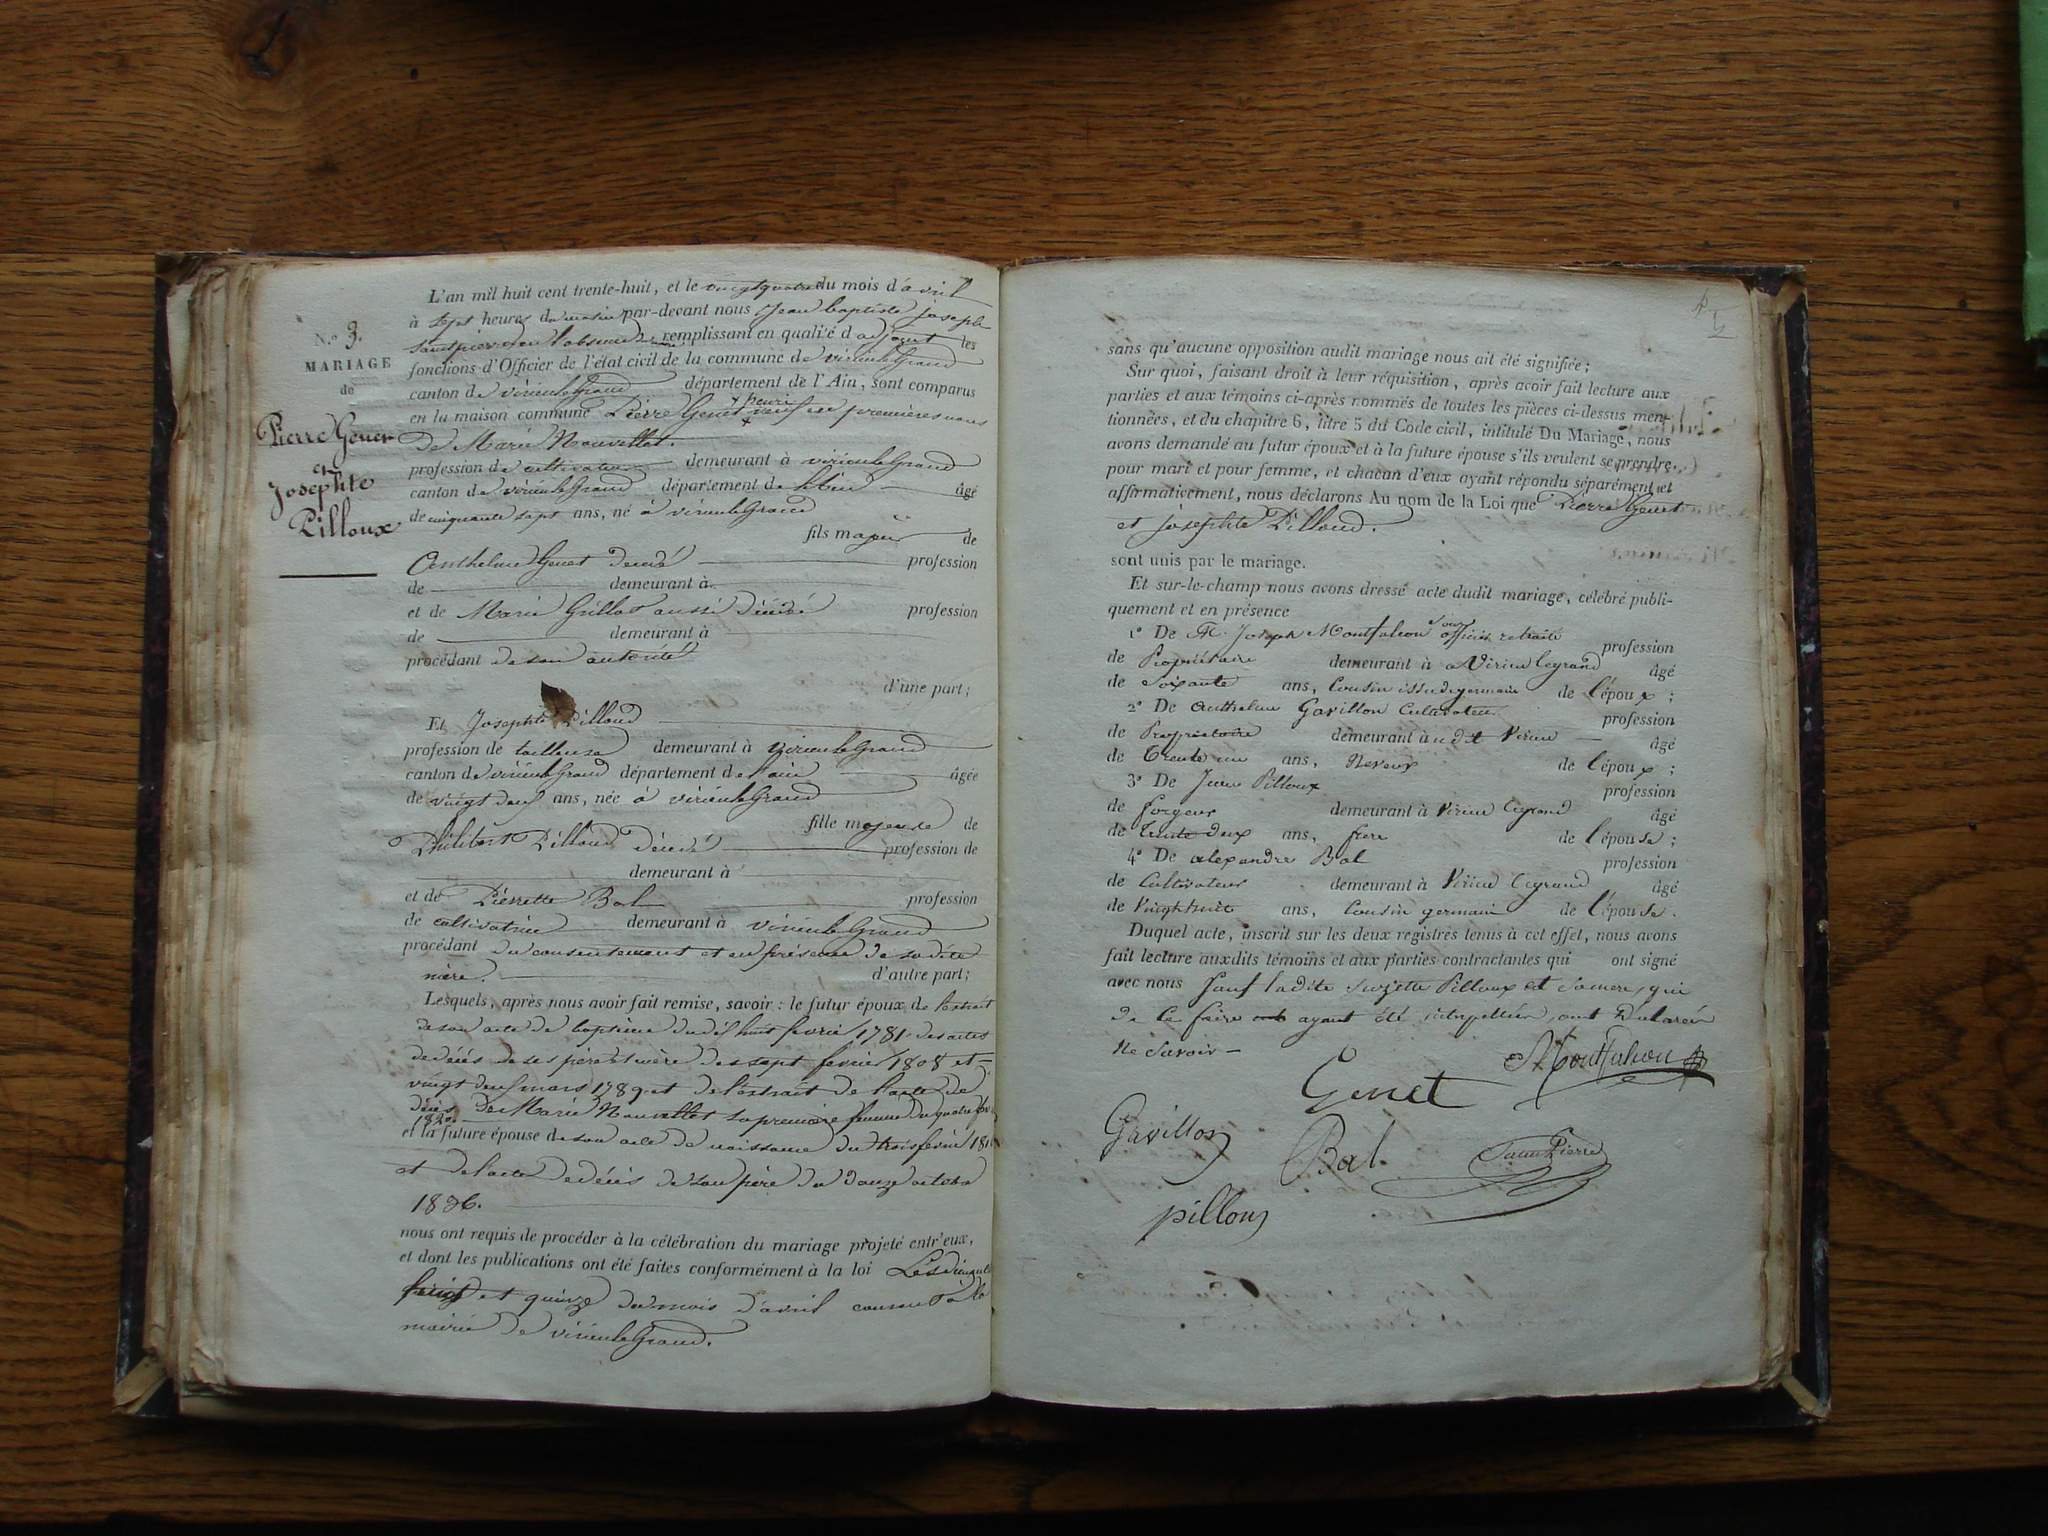 N.o 3.
MARIAGE
de
Pierre Genet
et
Josephte
Pilloux
L'an mil huit cent trente-huit, et le vingtquatre du mois d'avril
à sept heures du matin par-devant nous Jean baptiste joseph
saintpierre en l'absence remplissant en qualité d'adjoint les
fonctions d'Officier de l'état civil de la commune de virieulegrand
canton de virieulegrand département de l'Ain, sont comparus
en la maison commune Pierre Genet veuf en premières noces
de Marie Nouvellet.
profession de cultivateur demeurant à virieulegrand
canton de virieulegrand département de l'ain âgé
de cinquante sept ans, né à virieulegrand
fils majeur de
Anthelme Genet décédé profession
de demeurant à
et de Marie Grillot aussi décédée profession
de demeurant à
procédant de son autorité
d'une part;
Et Josephte Pilloud
profession de tailleuse demeurant à virieulegrand
canton de virieulegrand département de l'ain âgée
de vingt deux ans, née à virieulegrand
fille majeure de
Philibert Pilloud décédé profession de
demeurant à
et de Pierrette Bal profession
de cultivatrice demeurant à virieulegrand
procédant du consentement et en présence de sadite
mère. d'autre part;
Lesquels, après nous avoir fait remise, savoir: le futur époux de l'extrait
de son acte de baptême du dix huit février 1781. des actes
de décès de ses père et mère des sept février 1808 et
vingt deux mars 1789 et de l'extrait de l'acte de
décès de Marie Nouvellet sa première femme du quatre
et la future épouse de son acte de naissance du trois février
et de l'acte de décès de son père du douze octobre
1836.
nous ont requis de procéder à la célébration du mariage projeté entr'eux,
et dont les publications ont été faites conformément à la loi Les dimanches
et quinze du mois d'avril courant à la
mairie de virieulegrand.
sans qu'aucune opposition audit mariage nous ait été signifiée;
Sur quoi, faisant droit à leur réquisition, après avoir fait lecture aux
parties et aux témoins ci-après nommés de toutes les pièces ci-dessus men-
tionnées, et du chapitre 6, titre 5 du Code civil, intitulé Du Mariage, nous
avons demandé au futur époux et à la future épouse s'ils veulent se prendre
pour mari et pour femme, et chacun d'eux ayant répondu séparément et
affirmativement, nous déclarons Au nom de la Loi que Pierre Genet
et josephte Pilloud.
sont unis par le mariage.
Et sur-le-champ nous avons dressé acte dudit mariage, célébré publi-
quement et en présence
1º De M. Joseph Montfalcon officier retraité profession
de Propriétaire demeurant à Virieu legrand âgé
de Soixante ans, Cousin issu de germain de l'époux;
2º De anthelme Gavillon Cultivateur profession
de Propriétaire demeurant à udit Virieu âgé
de Trente un ans, Neveux de l'époux;
3º De Jean Pilloux profession
de forgeur demeurant à Virieu legrand âgé
de trente deux ans, frere de l'épouse;
4º De alexandre Bal profession
de Cultivateur demeurant à Virieu legrand âgé
de Vingthuit ans, Cousin germain de l'épouse.
Duquel acte, inscrit sur les deux registres tenus à cet effet, nous avons
fait lecture auxdits témoins et aux parties contractantes qui ont signé
avec nous sauf ladite Suzette Pilloux et Samere, qui
de ce faire ayant été interpellées, ont déclaré
ne savoir
Montfalcon
Genet
Gavillon
Bal.
SaintPierre
pilloux